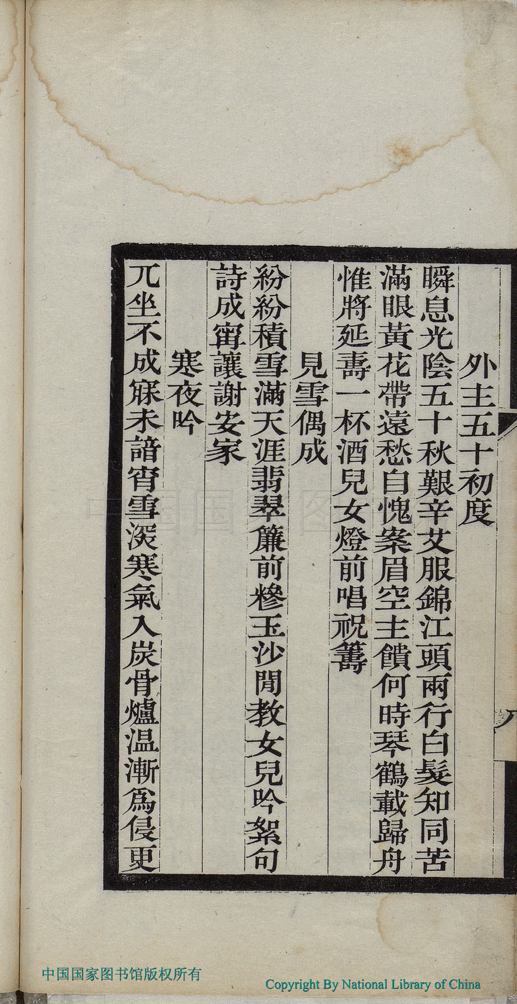 外主五十初度
瞬息光陰五十秋艱辛艾服錦江頭兩行白髮知同苦
滿眼黃花帶遠愁自愧案眉空主饋何時琴鶴載歸舟
惟將延壽一杯酒兒女燈前唱祝籌
見雪偶成
紛紛積雪滿天涯翡翠簾前糝玉沙閒教女兒吟絮句
詩成甯讓謝安家
寒夜吟
兀坐不成寐未諳宵雪深寒氣入炭骨爐温漸爲侵更
中国国家图书馆版权所有
Copyright By National Library of China